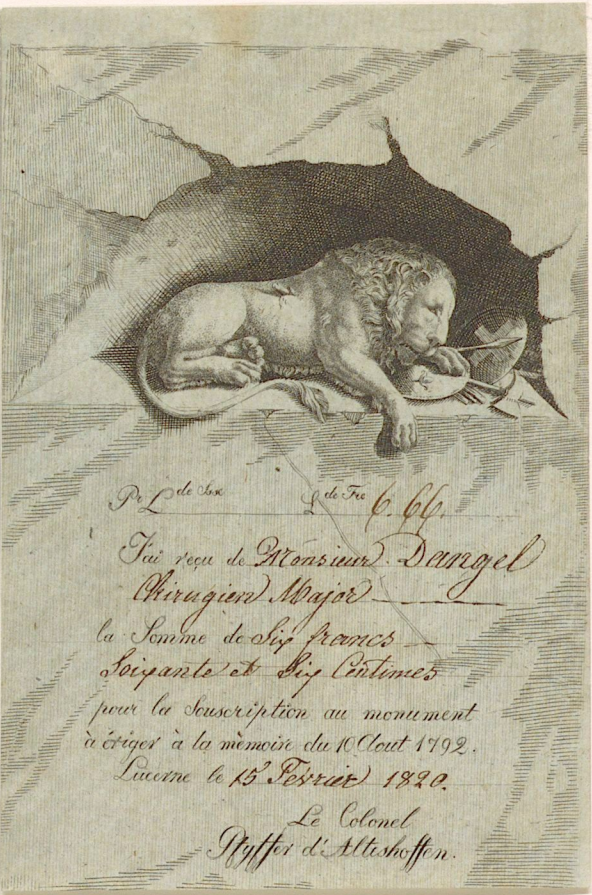 Pr L de Sse L de Fce 6.66.
J'ai reçu de Monsieur Dangel
Chirugien Major
la Somme de Six francs
Soixante et Six Centimes
pour la Souscription au monument
à ériger à la mèmoire du 10 Aout 1792.
Lucerne le 15 Fevrier 1820.
Le Colonel
Pfyffer d'Altishoffen.